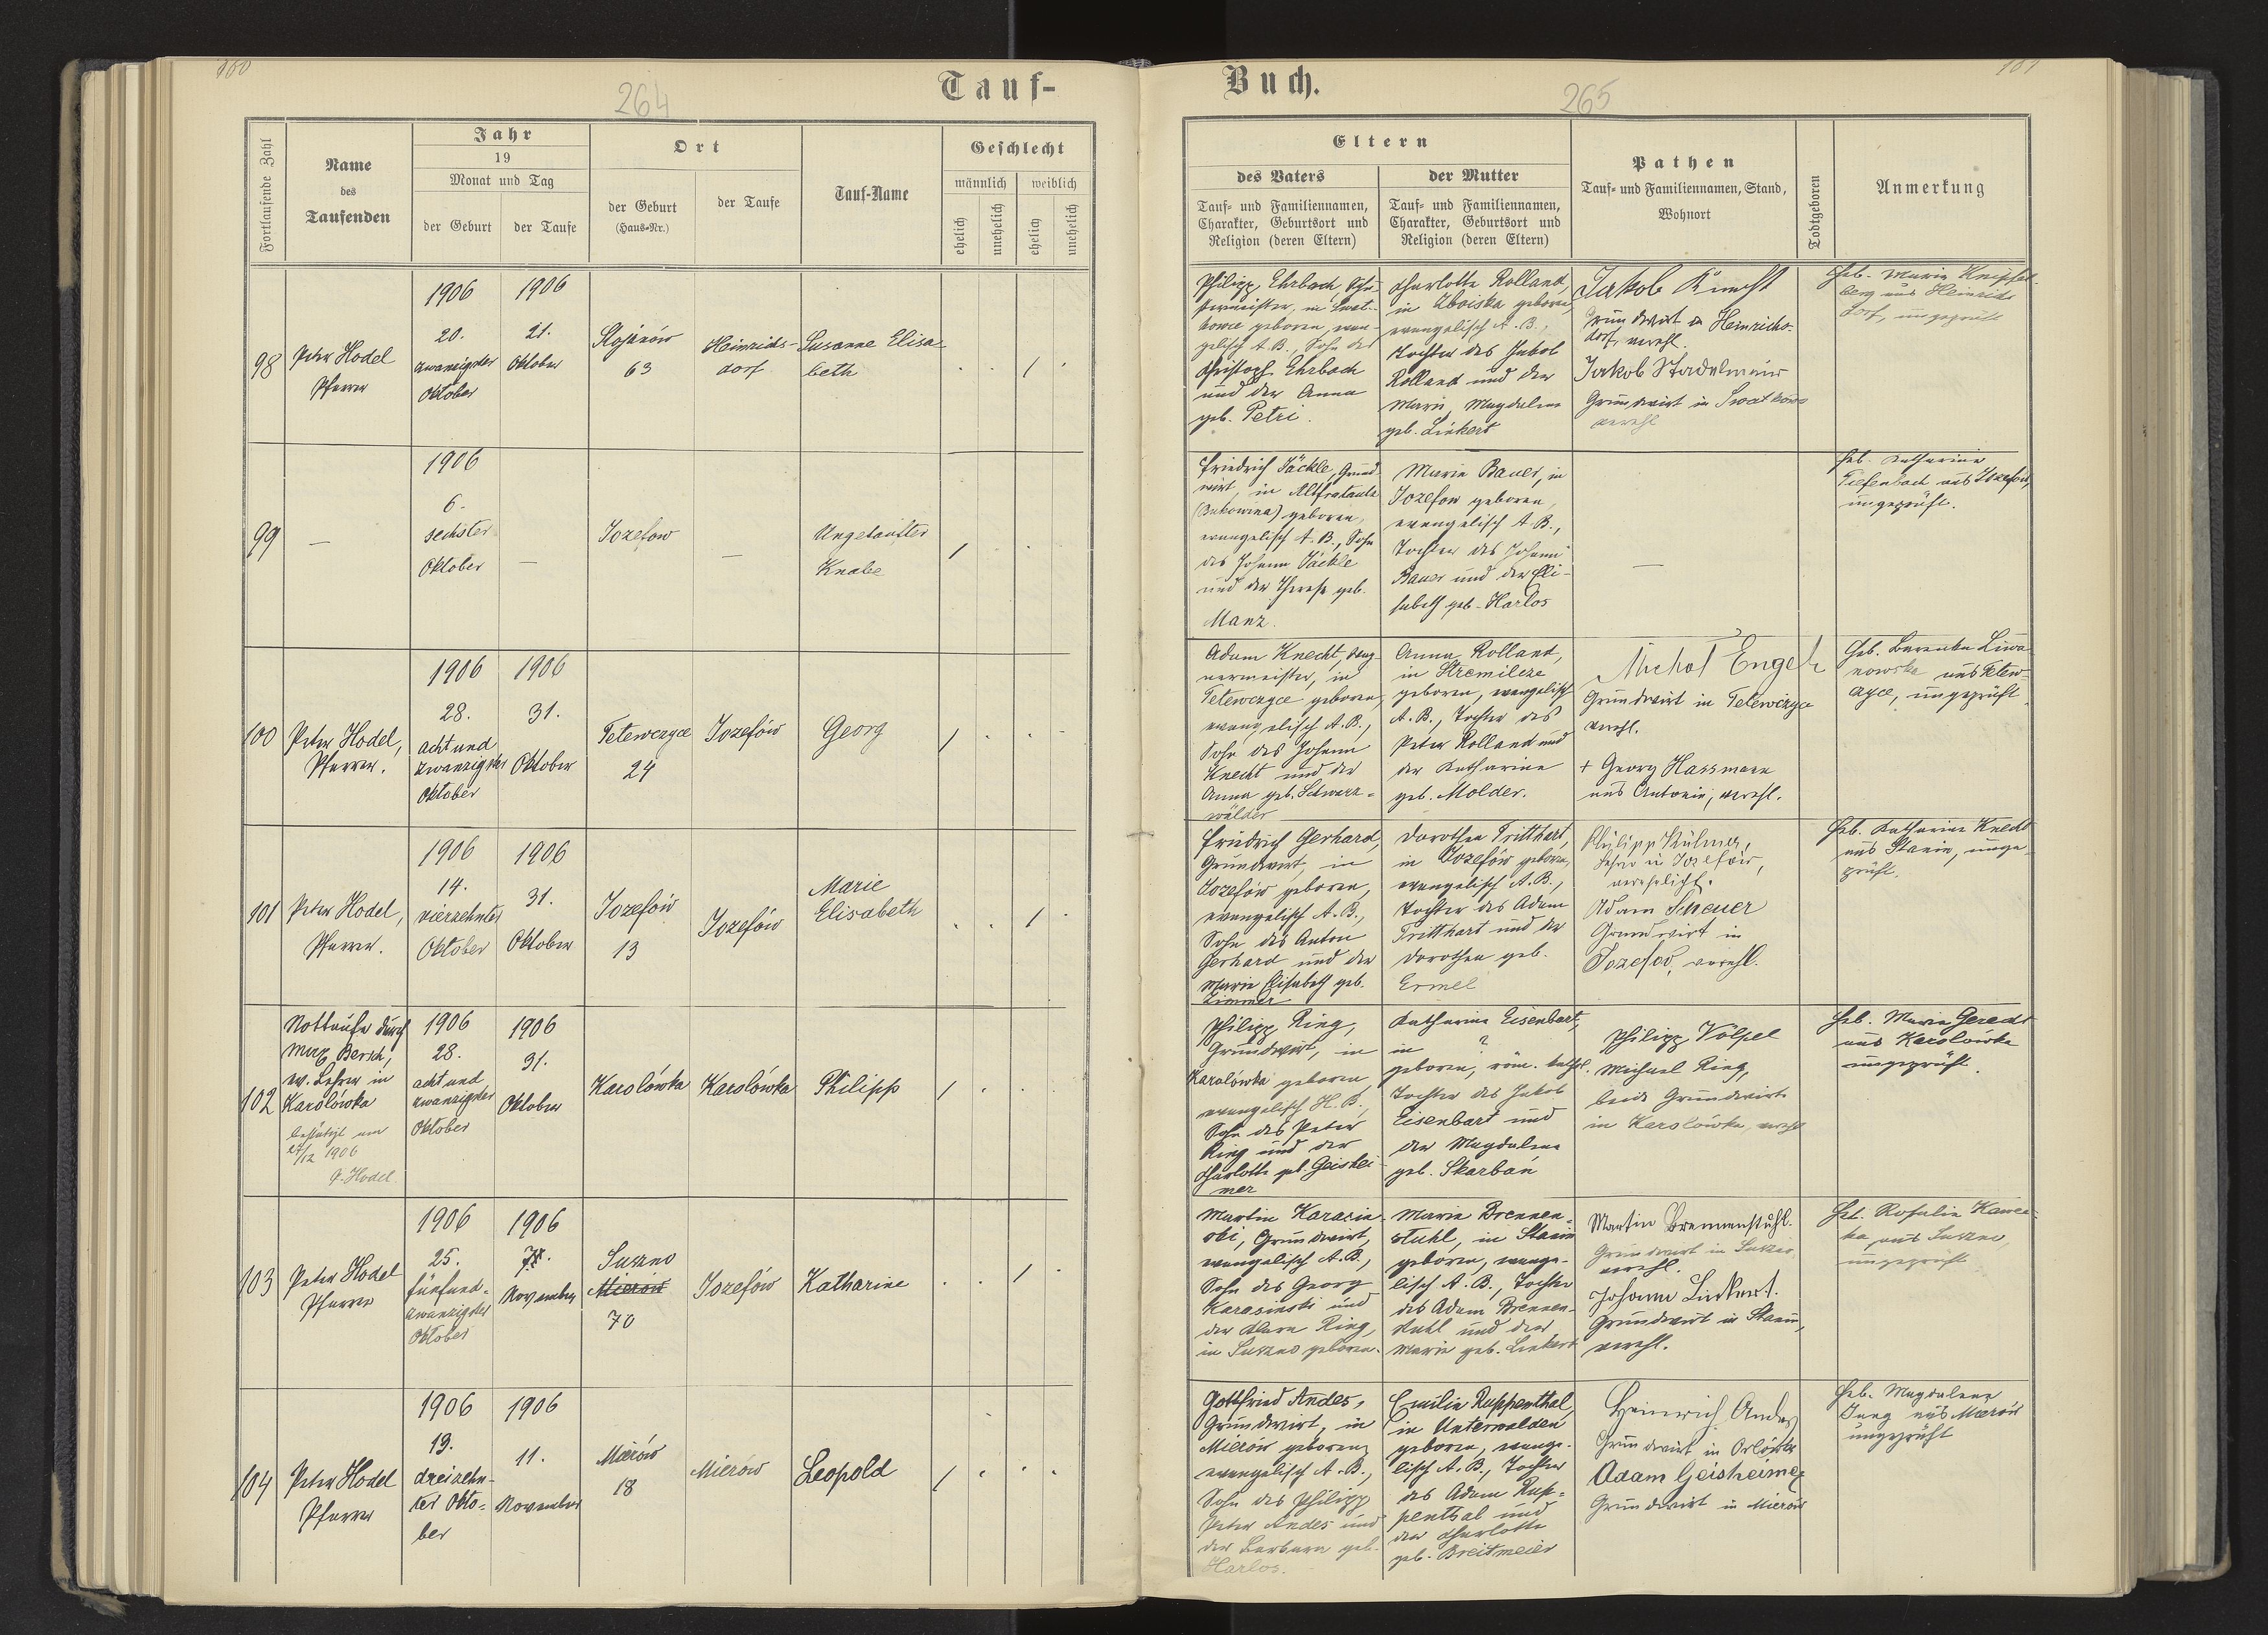 160
264
Tauf-
Fortlaufende Zahl
Name
des
Taufenden
Jahr
19
Monat und Tag
der Geburt
der Taufe
Ort
der Geburt
(Haus-Nr.)
der Taufe
Tauf-Name
Geschlecht
männlich
weiblich
ehelich
unehelich
ehelich
unehelich
98
Peter Hodel
Pfarrer
1906
20.
zwanzigster
Oktober
1906
21.
Oktober
Stojanów
63
Heinrichs-
dorf
Susanne Elisa-
beth
99
—
1906
6.
sechster
Oktober
—
Jozefow
—
Ungetaufter
Knabe
100
Peter Hodel,
Pfarrer.
1906
28.
acht und
zwanzigster
Oktober
1906
31.
Oktober
Tetewczyce
24
Jozefów
Georg
101
Peter Hodel,
Pfarrer.
1906
14.
vierzehnter
Oktober
1906
31.
Oktober
Jozefów
13
Jozefów
Marie
Elisabeth
102
Nottaufe durch
Max Bersch,
ev. Lehrer in
Karolówka
bestätigt am
27/12 1906
P. Hodel
1906
28.
acht und
zwanzigster
Oktober
1906
31.
Oktober
Karolówka
Karolówka
Philipp
103
Peter Hodel
Pfarrer
1906
25.
fünfund-
zwanzigster
Oktober
1906
November
Suszno
Mierów
70
Jozefów
Katharine
104
Peter Hodel
Pfarrer
1906
13.
dreizehn-
ter Okto-
ber
1906
11.
November
Mierów
18
Mierów
Leopold
161
265
Buch.
Eltern
des Vaters
Tauf- und Familiennamen,
Charakter, Geburtsort und
Religion (deren Eltern)
der Mutter
Tauf- und Familiennamen,
Charakter, Geburtsort und
Religion (deren Eltern)
Pathen
Tauf- und Familiennamen, Stand,
Wohnort
Todtgeboren
Anmerkung
Philipp Ehrbach, Schu-
stermeister, in
geboren, evan-
gelisch A. B., Sohn des
Christoph Ehrbach
und der Anna
geb. Petri.
Charlotte Rolland,
in Zboiska geboren,
evangelisch A. B.,
Tochter des Jakob
Rolland und der
Marie Magdalene
geb. Linkert
Jakob Knecht
Grundwirt in Heinrichs-
dorf, verehl.
Jakob Stadelmaier
Grundwirt in
verehl
Heb. Maria
berg aus Heinrichs-
dorf, ungeprüft
Friedrich Jäckle, Grund-
wirt, in Altfratautz
(Bukowina) geboren,
evangelisch A. B., Sohn
des Johann Jäckle
und der Therese geb.
Manz.
Marie Bauer, in
Jozefow geboren,
evangelisch A. B.,
Tochter des Johann
Bauer und der Eli-
sabeth geb. Harlos
—
Heb. Katharina
Tiefenbach aus Jozefow,
ungeprüft.
Adam Knecht,
meister, in
Tetewczyce geboren,
evangelisch A. B.,
Sohn des Johann
Knecht und der
Anna geb. Schwarz-
wälder
Anna Rolland,
in Stremilcze
geboren, evangelisch
A. B., Tochter des
Peter Rolland und
der Katharine
geb. Molder.
Michał Engel
Grundwirt in Tetewczyce
verehl.
+ Georg Hassmann
aus Antonin, verehl.
Heb. Barenka Liwa-
nowska aus Tetew-
czyce, ungeprüft
Friedrich Gerhard,
Grundwirt, in
Jozefów geboren,
evangelisch A. B.,
Sohn des Anton
Gerhard und der
Marie Elisabeth geb.
Zimmer
Dorothea Tritthart,
in Jozefów geboren,
evangelisch A. B.,
Tochter des Adam
Tritthart und der
Dorothea geb.
Ermel
Philipp
Lehrer in Jozefów,
verehelicht.
Adam Scheuer
Grundwirt in
Jozefov, verehl.
Heb. Katharina Knecht
aus Stanin, unge-
prüft.
Philipp Ring,
Grundwirt, in
Karolówka geboren,
evangelisch H. B.,
Sohn des Peter
Ring und der
Charlotte geb. Geishei-
mer
Katharina Eisenbart,
in ?
geboren, röm. kathol.
Tochter des Jakob
Eisenbart und
der Magdalena
geb. Skarban
Philipp Völpel
Michael Ring,
beide Grundwirte
in Karolówka, verehl
Heb. Maria Geredt
aus Karolówka
ungeprüft.
Martin Karasin-
ski, Grundwirt,
evangelisch A. B.,
Sohn des Georg
Karasinski und
der Clara Ring,
in Suszno geboren.
Marie Brennen-
stuhl, in Stanin
geboren, evange-
lisch A. B., Tochter
des Adam Brennen-
stuhl und der
Marie geb. Linkert
Martin Brennenstuhl.
Grundwirt in Suszno,
verehl.
Johann Linkert.
Grundwirt in Stanin,
verehl.
Heb. Rosalia
ka aus Suszno,
ungeprüft
Gottfried Andes,
Grundwirt, in
Mierów geboren,
evangelisch A. B.,
Sohn des Philipp
Peter Andes und
der Barbara geb.
Harlos.
Emilie Ruppenthal,
in Unterwalden
geboren, evange-
lisch A. B., Tochter
des Adam Rup-
penthal und
der Charlotte
geb. Breitmeier
Heinrich Andes
Grundwirt in
Adam Geisheimer
Grundwirt in Mierów
Heb. Magdalena
Jung aus Mierów
ungeprüft